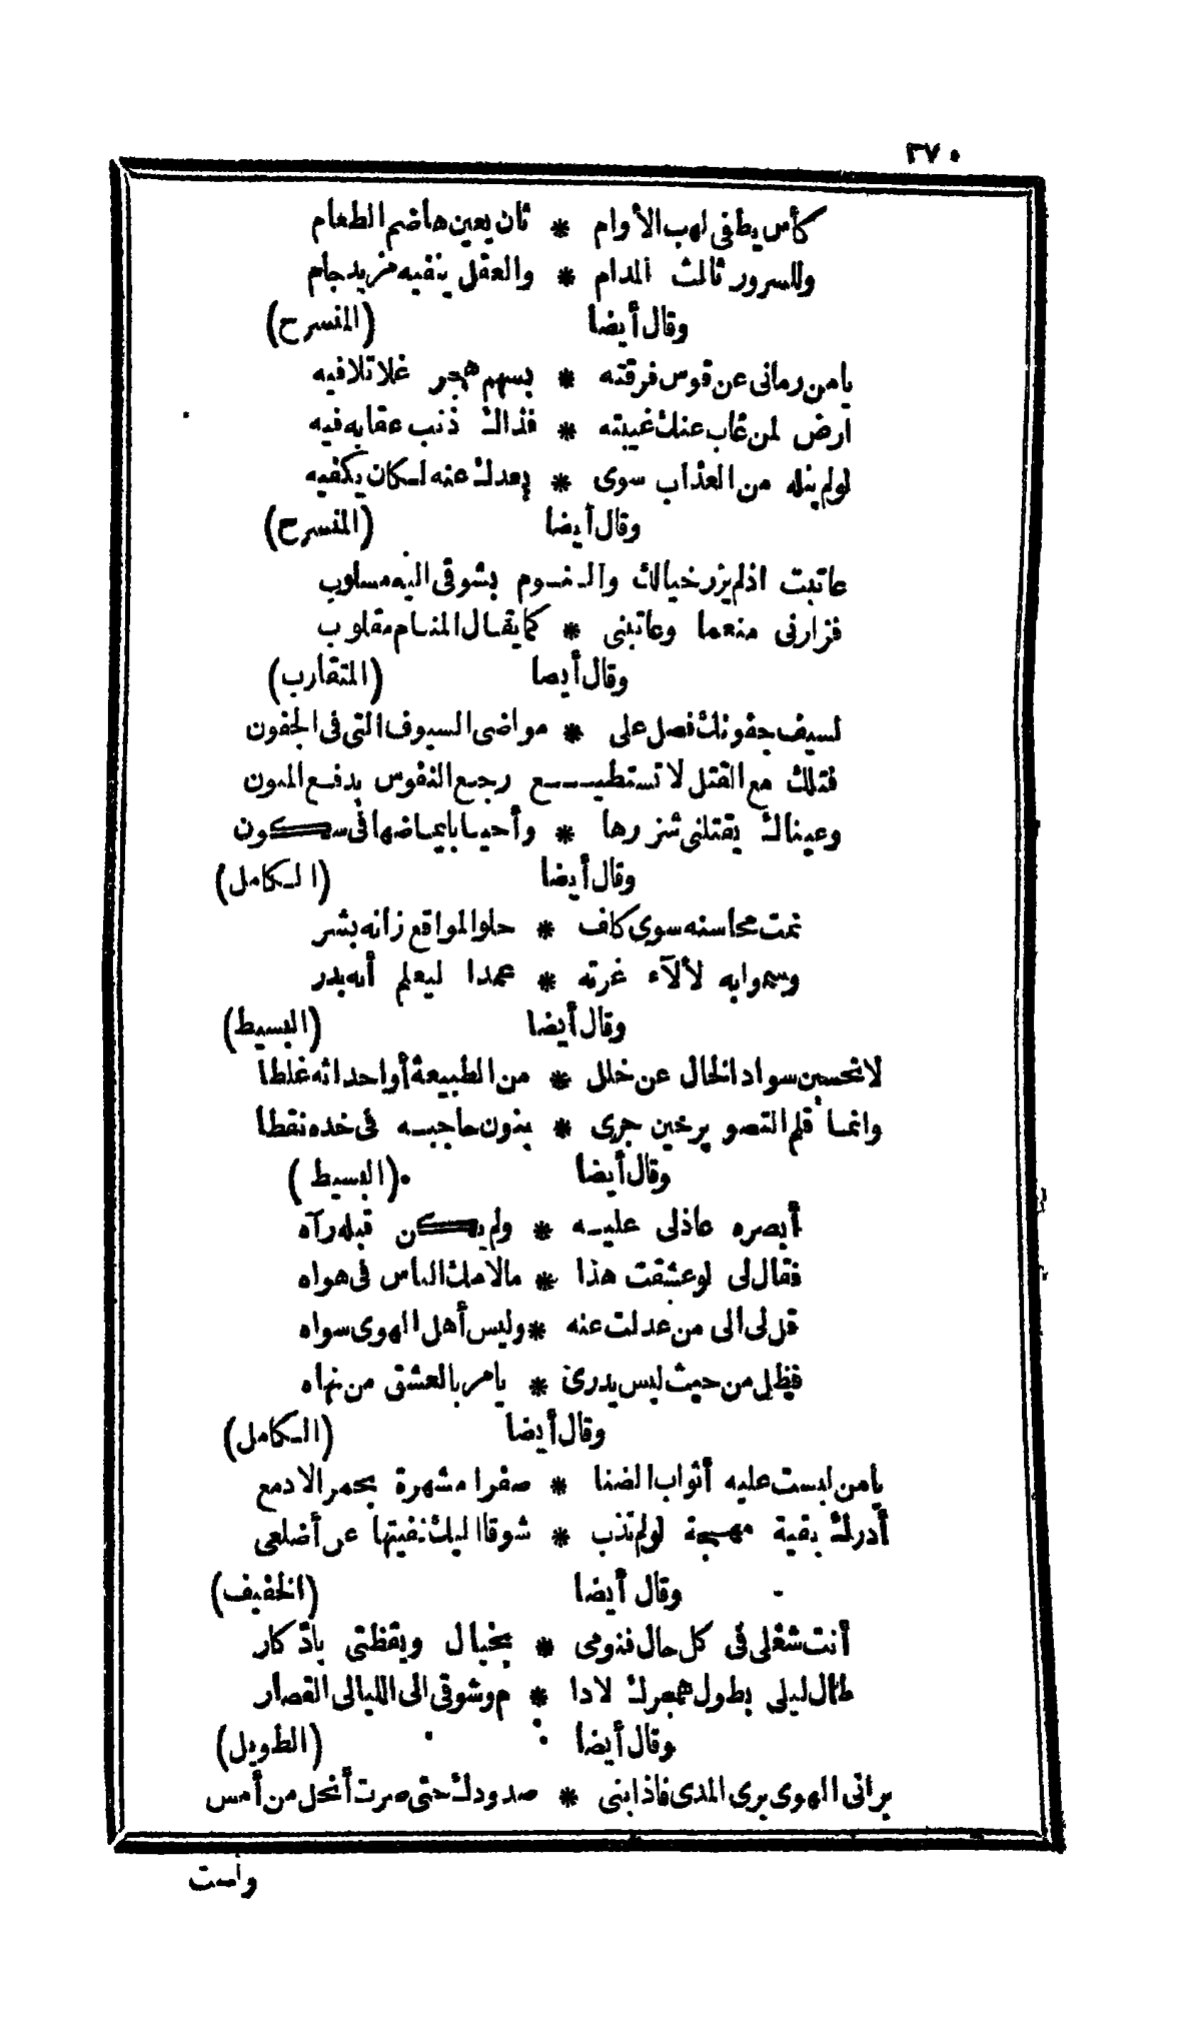 ٣٧٠
كأس يطفى لهب الأوام * ثان يعين هاضم الطعام
وللسرور ثالث المدام * والعقل ينفيه مزيد جام
وقال أيضا (المنسرح)
يامن رمانى عن قوس فرقته * بسهم هجر غلاتلافيه
ارض لمن غاب عنك غيبته * فذالك ذنب عقابه فيه
لولم ينله من العذاب سوى * بعدك عنه لكان يكفيه
وقال أيضا (المنسرح)
عاتبت اذلم يزر خيالك والنـوم بشوقى اليه مسلوب
فزارنى منعما وعاتبنى * كما يقال المنام مقلوب
وقال أيصا (المتقارب)
لسيف جفونك فصل على * مواضى السيوف التى فى الجفون
فتلك مع القتل لا تستطيـــع رجع النفوس بدفع المنون
وعيناك يقتلنى شزرها * وأحيا بايماضها فى سكون
وقال أيضا (الكامل)
تمت محاسنه سوى كلف * حلو المواقع زانه بشر
وسموا به لألآء غرته * عمدا ليعلم أنه بدر
وقال أيضا (البسيط)
لا تحسبن سواد الخال عن خلل * من الطبيعة أواحداثه غلطا
وانما قلم التصوير حين جرى * بنون حاجبه فى خده نقطا
وقال أيضا (البسيط)
أبصره عاذلى عليه * ولم يكن قبله رآه
فقال لى لو عشقت هذا * مالامك الناس فى هواه
قل لى الى من عدلت عنه * وليس أهل الهوى سواه
فظل من حيث ليس يدرى * يامر بالعشق من نهاه
وقال أيضا (الكامل)
يامن لبست عليه أثواب الضنا * صفرا مشهرة بحمر الادمع
أدرك بقية مهجة لولم تذب * شوقا اليك نفيتها عن أضلعى
وقال أيضا (الخفيف)
أنت شغلى فى كل حال فنومى * بخيال ويقظتى باذكار
طال ليلى بطول هجرك لادا * م وشوقى الى الليالى القصار
وقال أيضا (الطويل)
برانى الهوى برى المدى فاذابنى * صدودك حتى صرت أنحل من أمس
واست